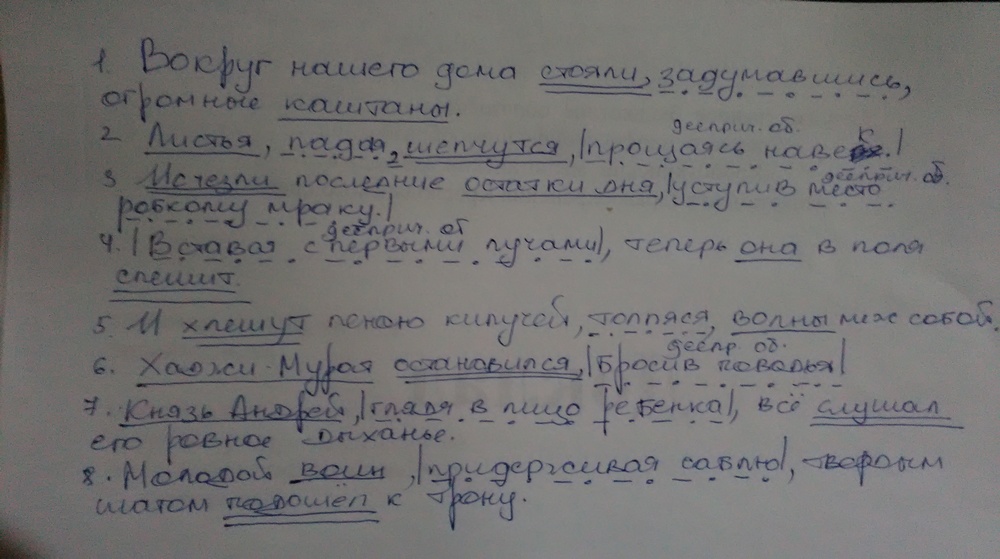 1. Вокруг нашего дома стояли, задумавшись,
огромные каштаны.
дееприч. об.
2 Листья, падая, шепчутся, |прощаясь навек.|
дееприч. об.
3 Исчезли последние остатки дня, |уступив место
робкому мраку.|
дееприч. об
4. |Вставая с первыми лучами|, теперь она в поля
спешит.
5. И хлещут пеною кипучей, толпяся, волны меж собой.
деепр. об.
6. Хаджи-Мурат остановился, |бросив поводья|
7. Князь Андрей, |глядя в лицо ребенка|, всё слушал
его ровное дыханье.
8. Молодой воин, |придерживая саблю|, твердым
шагом подошёл к трону.